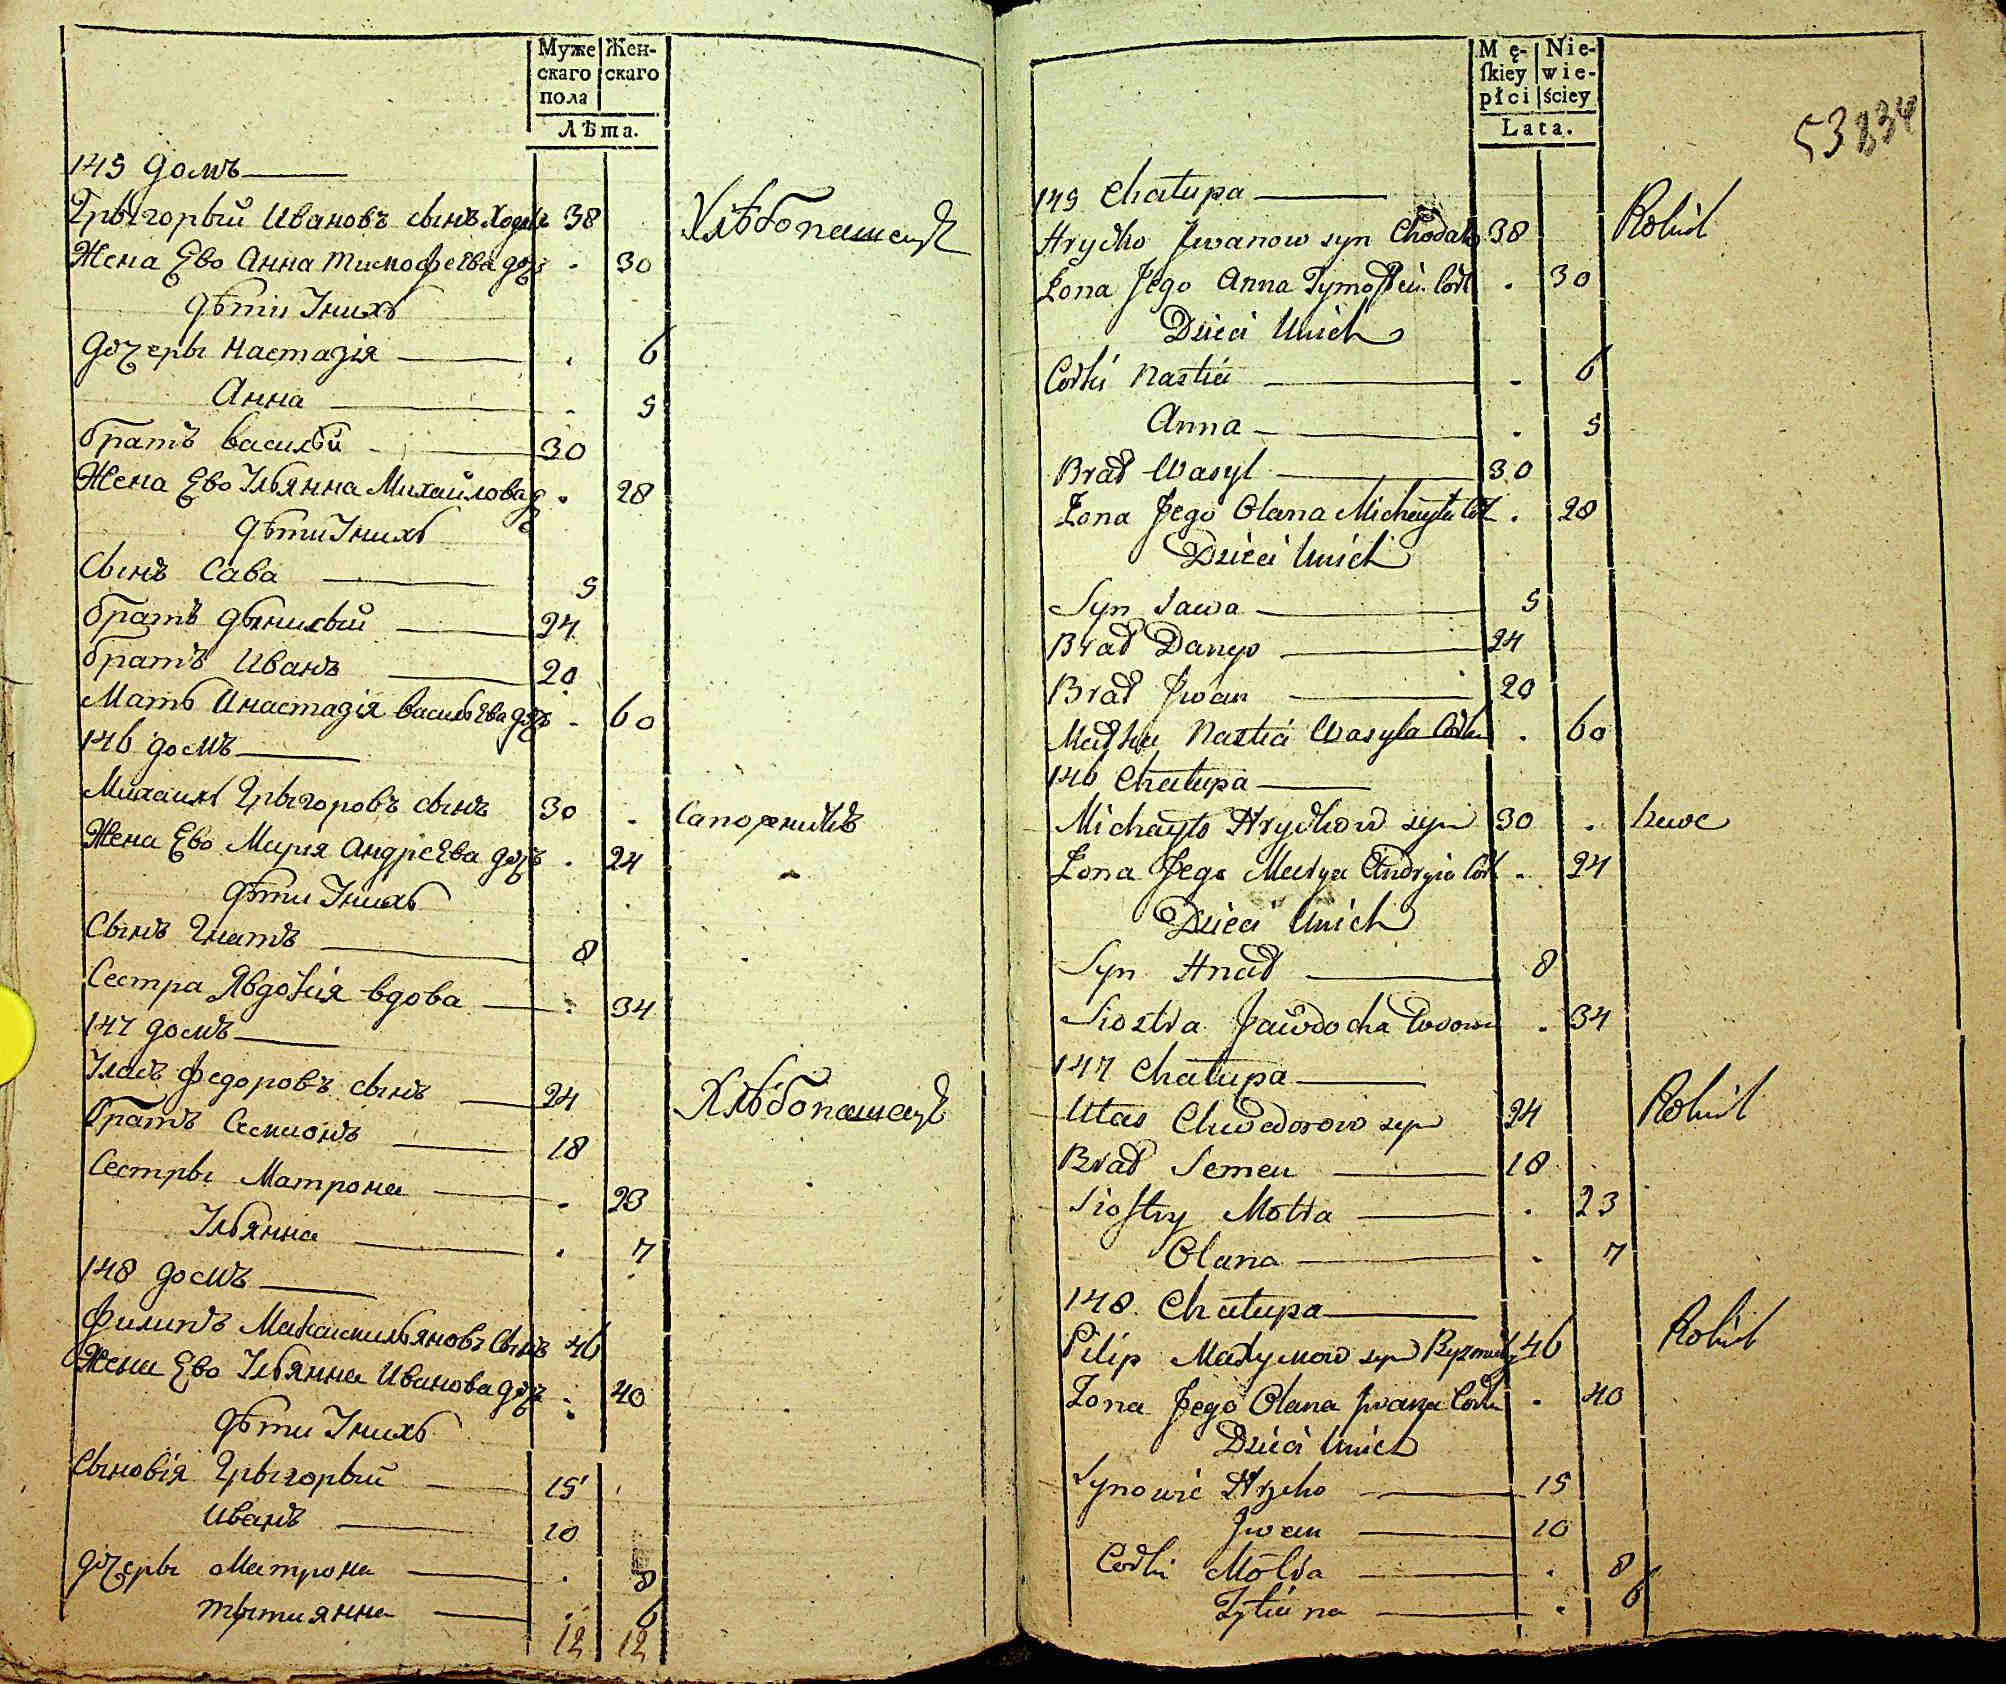 Муже
скаго
пола
Жен-
скаго
Лѣта.
145 домъ
Грыгорый Ивановъ сынъ 38 Хлѣбопашецъ
Жена Ево Анна Тимофеева доч . 30
Дѣти Унихъ
Дочеры Настазія . 6
Анна . 5
братъ василій 30
Жена Ево Ульянна Михайлова д . 28
Дѣти Унихъ
Сынъ Сава 5
братъ 24
братъ Иванъ 20
Мать Инастазія васильева доч . 60
146 домъ
Михаилъ Грыгоровъ сынъ 30 . Сапожникъ
Жена Ево Марія Андреева доч . 24
Дѣти Унихъ
Сынъ Гнатъ 8
Сестра Явдокія вдова . 34
147 домъ
Уласъ Федоровъ сынъ 24 Хлѣбопашецъ
братъ Семионъ 18
Сестры Матрона . 23
Ульянна . 7
148 домъ
Филипъ Максимильяновъ Сынъ 46
Жена Ево Ульянна Иванова доч . 40
Дѣти Унихъ
Сыновія Грыгорый 15
Иванъ 10
Дочеры Матрона . 8
Тытиянна . 6
12 12
Mę-
ſkiey
płci
Nie-
wie-
ściey
Lata.
53 834
145 Chałupa
Hryćko Jwanow syn Chodak 38 Rolnik
Żona Jego Anna Tymofieia Cork . 30
Dzieci Unich
Corki Nastia . 6
Anna . 5
Brat Wasyl 30
Żona Jego Olana Michayła Cor . 28
Dzieci Unich
Syn Sawa 5
Brat Danyo 24
Brat Jwan 20
Matka Nastia Wasyla Corka . 60
146 Chałupa
Michayło Hryćkow syn 30 . szwc
Żona Jego Marya Andryia Cor . 24
Dzieci Unich
Syn Hnat 8
Siostra Jawdocha Wdowa . 34
147 Chałupa
Ułas Chwedorow syn 24 Rolnik
Brat Semen 18
Sioſtry Motra . 23
Olana . 7
148 Chałupa
Pilip Maxymow syn 46 Rolnik
Żona Jego Olana Jwana Corka . 40
Dzieci Unich
Synowie Hryćko 15
Jwan 10
Corki Motra . 8
Tytiana . 6